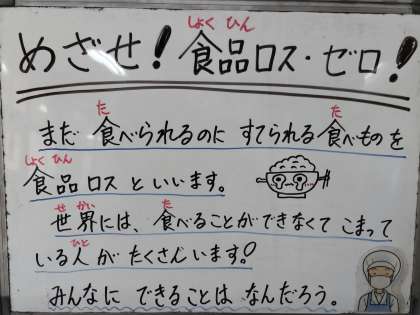 めざせ！食品ロス・ゼロ！
まだ食べられるのにすてられる食べものを
食品ロスといいます。
世界には、食べることができなくてこまって
いる人がたくさんいます！
みんなにできることはなんだろう。